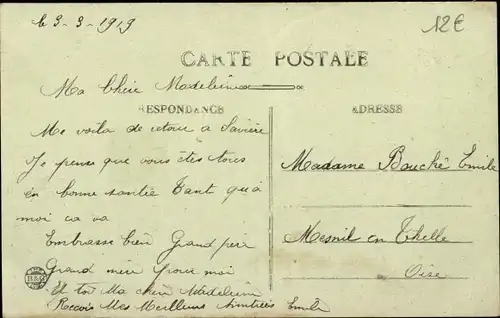 le 3-3-1919
12€
CARTE POSTALE
Ma Chère Madeleine
RESPONDANCE
ADRESSE
Me voila de retour a
Je pense que vous êtes tous
en bonne santée Tant qu'a
moi ca va
Embrasse bien Grand père
Grand mère pour moi
Et toi Ma chère Madeleine
Recois Mes Meilleurs Amitiées Emile
Madame Bouché Emile
Mesnil en Thelle
Oise